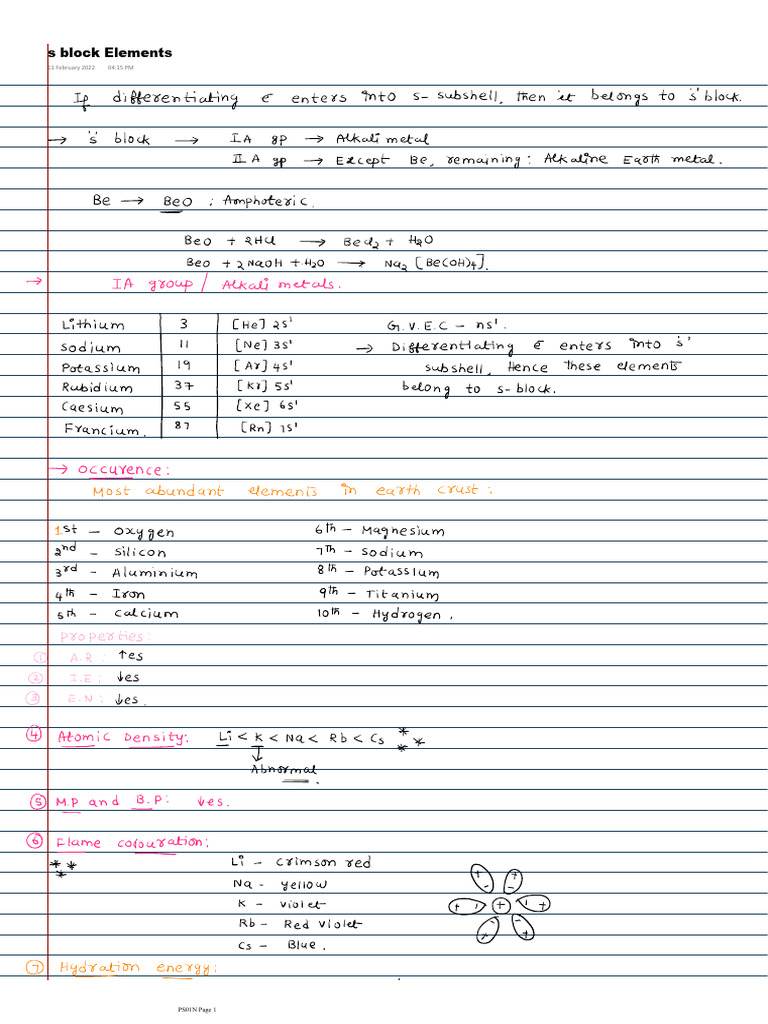 s block Elements
11 February 2022 04:15 PM
If differentiating ē enters into s- subshell, then it belongs to 's' block.
→ 's' block → IA gp → Alkali metal
IIA gp → Except Be, remaining: Alkaline Earth metal.
Be → BeO ; Amphoteric.
BeO + 2HCl → BeCl2 + H2O
BeO + 2NaOH + H2O → Na2 [Be(OH)4].
→ IA group / Alkali metals.
Lithium 3 [He] 2s¹ G.V.E.C - ns¹.
Sodium 11 [Ne] 3s¹ → Differentiating ē enters into 's'
Potassium 19 [Ar] 4s¹ subshell, Hence these elements
Rubidium 37 [Kr] 5s¹ belong to s-block.
Caesium 55 [Xe] 6s¹
Francium. 87 [Rn] 7s¹
→ Occurence:
Most abundant elements in earth crust:
1st - Oxygen 6th - Magnesium
2nd - Silicon 7th - Sodium
3rd - Aluminium 8th - Potassium
4th - Iron 9th - Titanium
5th - Calcium 10th - Hydrogen.
Properties:
① A.R: ↑es
② I.E: ↓es
③ E.N: ↓es.
④ Atomic Density: Li < K < Na < Rb < Cs ***
↓
Abnormal.
⑤ M.P and B.P: ↓es.
⑥ Flame colouration:
*** Li - Crimson red
Na - yellow
K - violet
Rb - Red violet
Cs - Blue.
⑦ Hydration energy:
PS01N Page 1